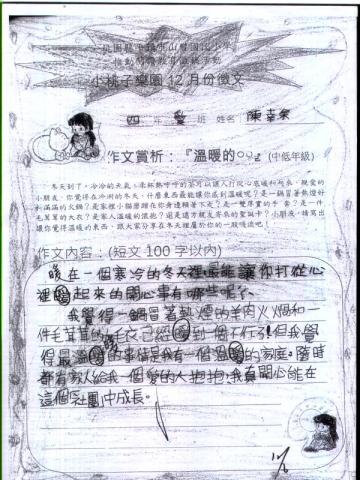 小桃子樂園12月份徵文
四年 班 姓名 陳幸
作文賞析：『溫暖的○○』(中低年級)
冬天到了，冷冷的天氣，來杯熱呼呼的茶可以讓人打從心底暖和起來，親愛的
小朋友，你覺得在冷冽的冬天，什麼東西最能讓你感到溫暖呢？是一鍋冒著熱煙好
料滿滿的火鍋？是家裡小貓磨蹭在你身邊轉著不走？是一雙厚實的手套？是一件
毛茸茸的大衣？是家人溫暖的懷抱？還是遠方親友寄來的聖誕卡？小朋友，請寫出
讓你覺得溫暖的東西，跟大家分享在冬天裡屬於你的一股暖流吧！
作文內容：(短文100字以內)
在一個寒冷的冬天裡最能讓你打從心
裡暖起來的開心事有哪些呢？
我覺得一鍋冒著熱煙的羊肉火鍋和一
件毛茸茸的毛衣已經暖到不行了！但我覺
得最溫暖的事情是我有一個溫暖的家庭。隨時
都有家人給我一個愛的大抱抱，我真開心能在
這個家庭中成長。